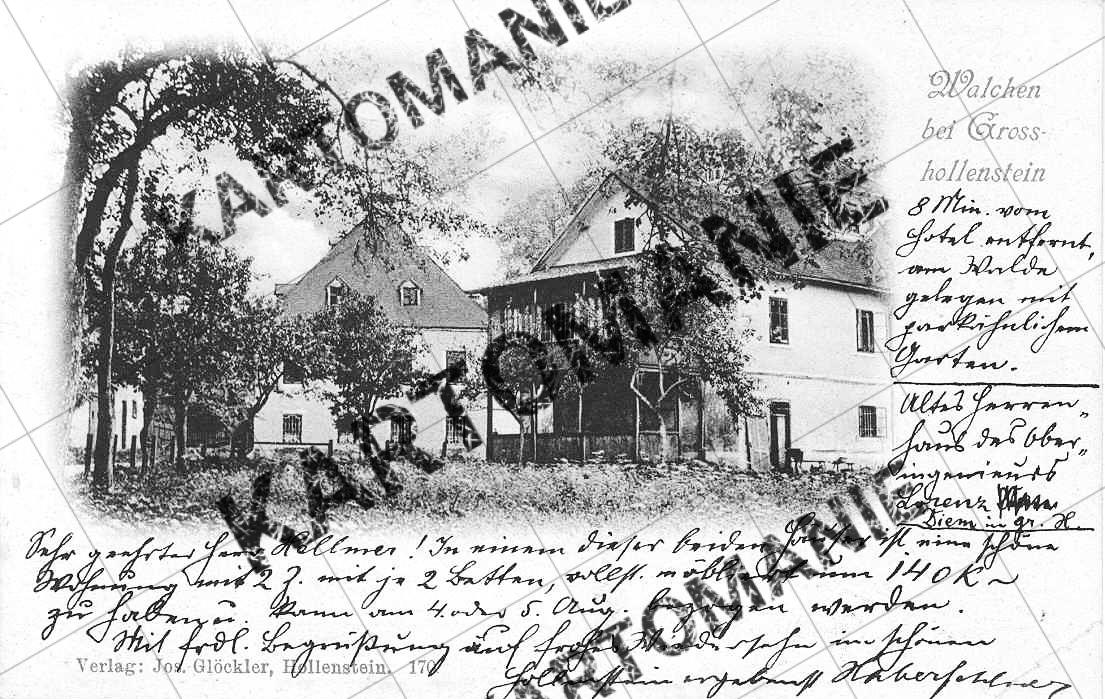 Walchen
bei Gross-
hollenstein
8 Min. vom
Hotel entfernt,
am Walde
gelegen mit
parkähnlichem
Garten.
Altes Herren-
haus des Ober-
ingenieurs
Lorenz
Diem in Gr. H.
Sehr geehrter Herr Hellmer! In einem dieser beiden Häuser ist eine schöne
Wohnung mit 2 Z. mit je 2 Betten, vollst. möbliert um 140 K
zu haben u. kann am 4. oder 5. Aug. bezogen werden.
Mit frdl. Begrüßung auf frohes Wiedersehn im schönen
Hollenstein ergebenst
Verlag: Jos. Glöckler, Hollenstein. 170
KARTOMANIE
KARTOMANIE
KARTOMANIE